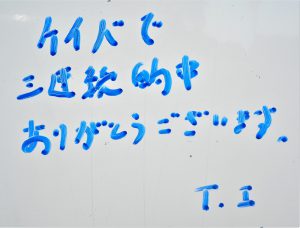 ケイバで
三連続的中
ありがとうございます。
T.I